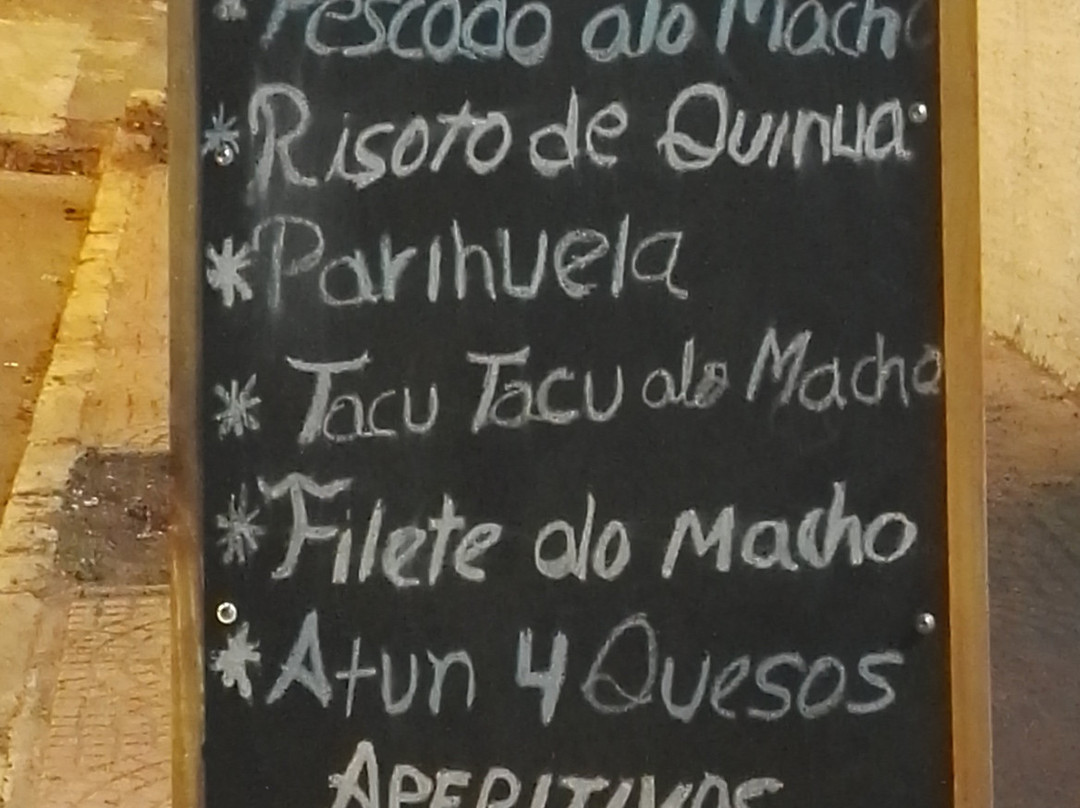 * Pescado alo Macho
* Risoto de Quinua
* Parihuela
* Tacu Tacu alo Macho
* Filete alo Macho
* Atun 4 Quesos
APERITIVOS